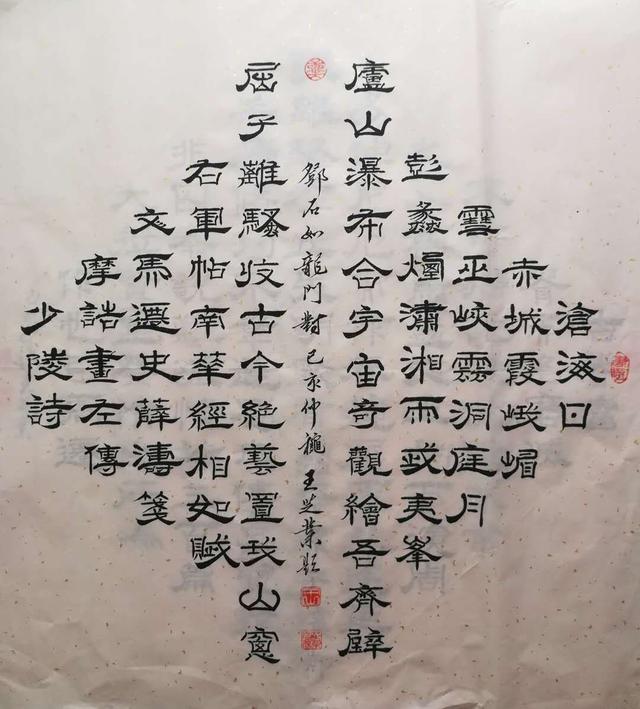 滄海日
赤城霞峨嵋
雪巫峽雲洞庭月
彭蠡煙瀟湘雨武夷峯
廬山瀑布合宇宙奇觀繪吾齊壁
少陵詩
摩詰畫左傳
文馬遷史薛濤箋
右軍帖南華經相如賦
屈子離騷收古今絕藝置我山窻
鄧石如龍門對己亥仲穐王芝業題